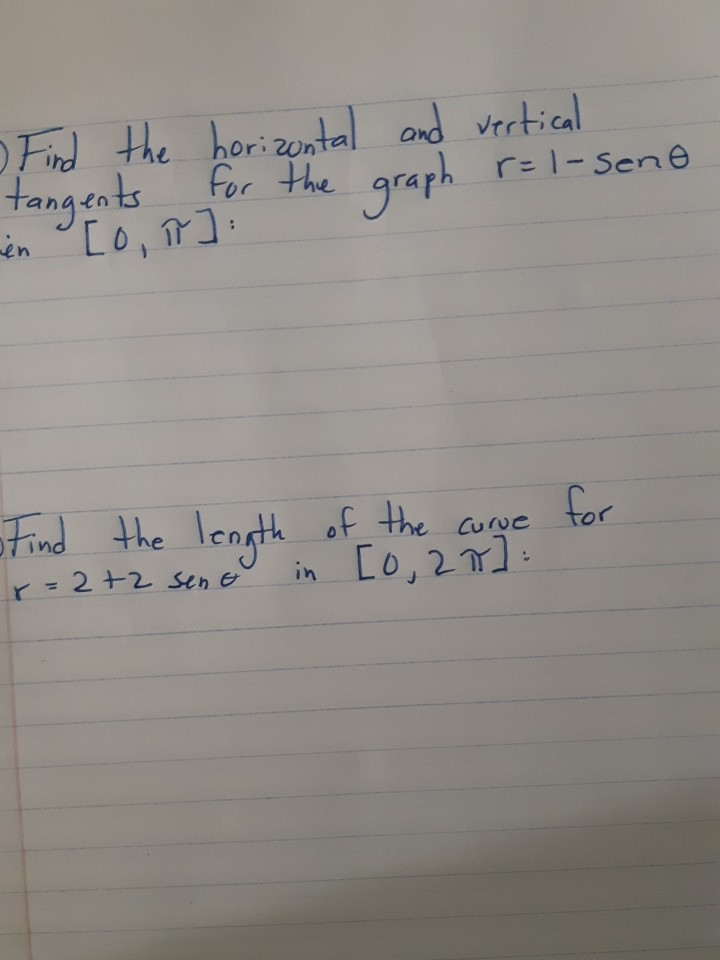 ) Find the horizontal and vertical
tangents for the graph r = 1 - sen θ
in [0, π]:
) Find the length of the curve for
r = 2 + 2 sen θ in [0, 2π]: